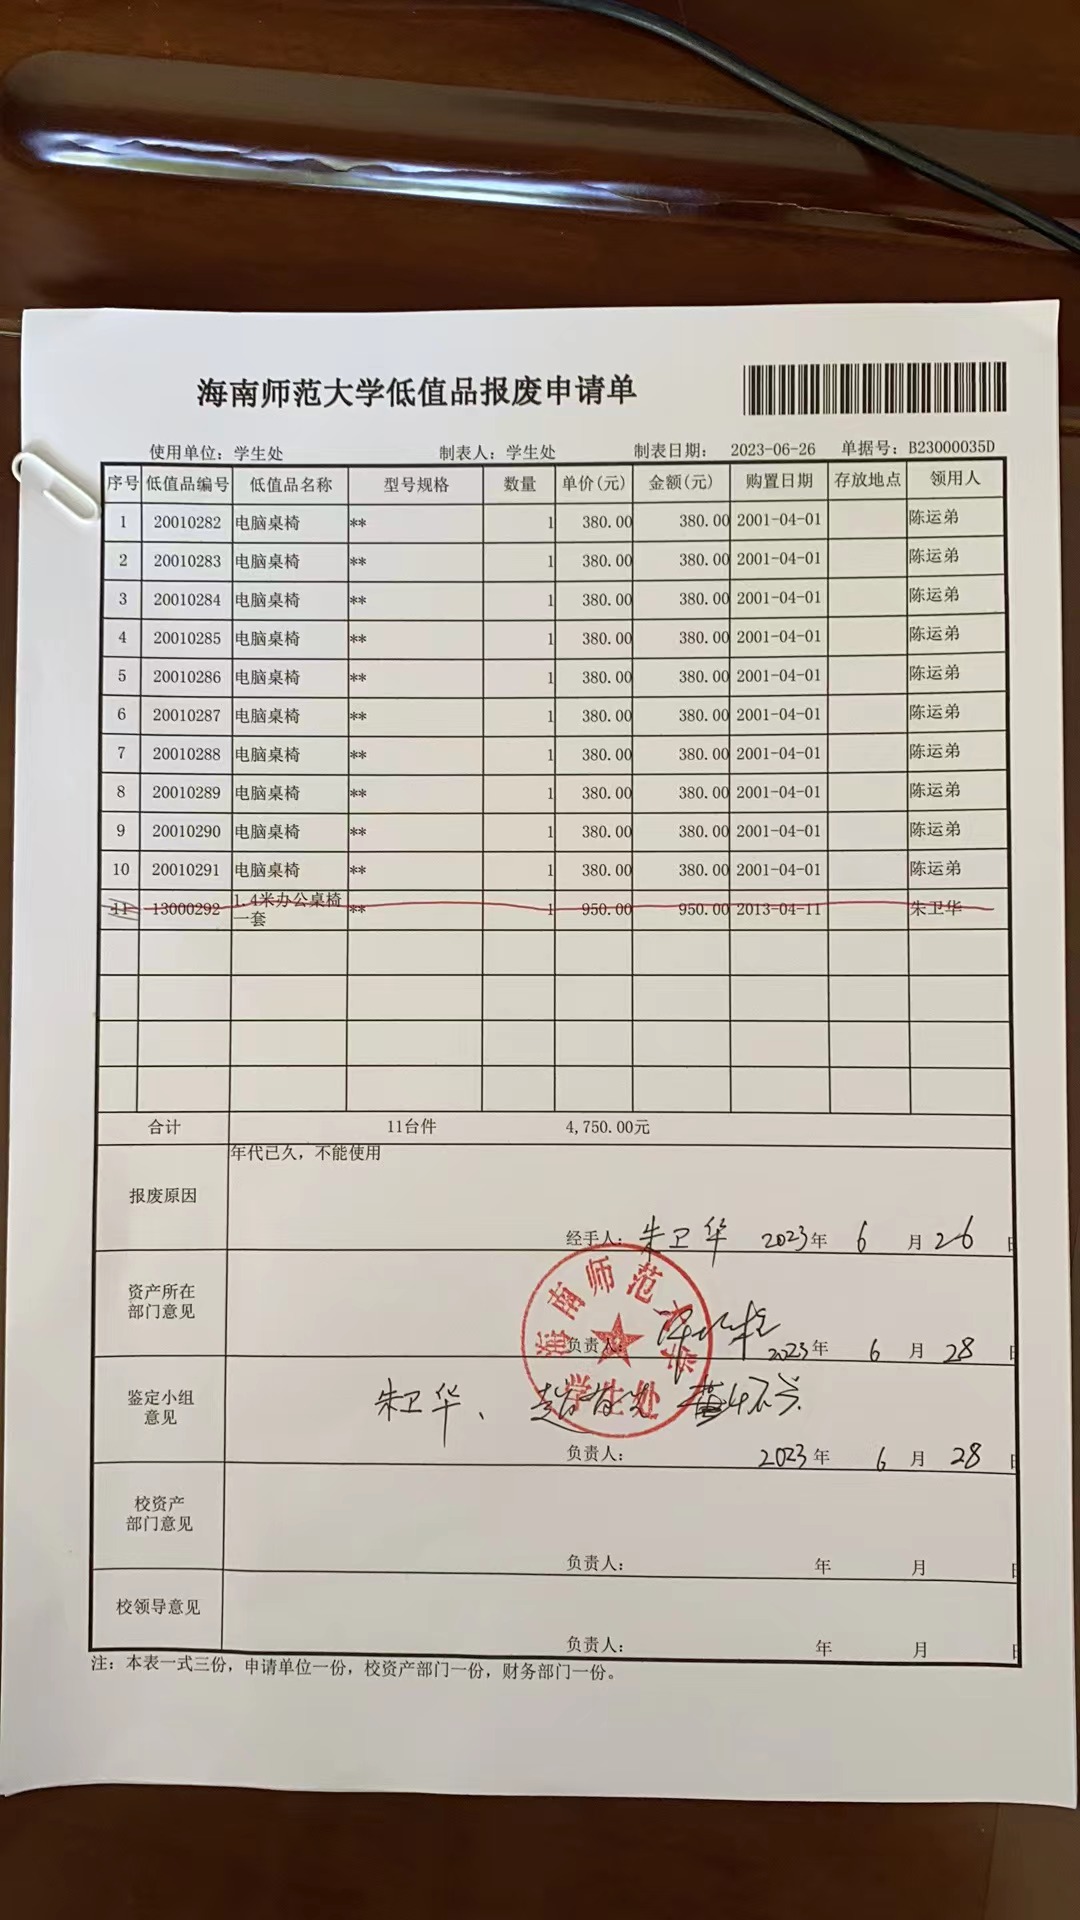 海南师范大学低值品报废申请单
使用单位：学生处 制表人：学生处 制表日期： 2023-06-26 单据号：B23000035D
序号 低值品编号 低值品名称 型号规格 数量 单价(元) 金额(元) 购置日期 存放地点 领用人
1 20010282 电脑桌椅 ** 1 380.00 380.00 2001-04-01 陈运弟
2 20010283 电脑桌椅 ** 1 380.00 380.00 2001-04-01 陈运弟
3 20010284 电脑桌椅 ** 1 380.00 380.00 2001-04-01 陈运弟
4 20010285 电脑桌椅 ** 1 380.00 380.00 2001-04-01 陈运弟
5 20010286 电脑桌椅 ** 1 380.00 380.00 2001-04-01 陈运弟
6 20010287 电脑桌椅 ** 1 380.00 380.00 2001-04-01 陈运弟
7 20010288 电脑桌椅 ** 1 380.00 380.00 2001-04-01 陈运弟
8 20010289 电脑桌椅 ** 1 380.00 380.00 2001-04-01 陈运弟
9 20010290 电脑桌椅 ** 1 380.00 380.00 2001-04-01 陈运弟
10 20010291 电脑桌椅 ** 1 380.00 380.00 2001-04-01 陈运弟
11 13000292 1.4米办公桌椅一套 ** 1 950.00 950.00 2013-04-11 朱卫华
合计 11台件 4,750.00元
年代已久，不能使用
报废原因
经手人：朱卫华 2023年 6 月 26 日
海南师范大学
学生处
资产所在
部门意见
负责人： 2023年 6 月 28 日
鉴定小组
意见
朱卫华、
负责人： 2023年 6 月 28 日
校资产
部门意见
负责人： 年 月 日
校领导意见
负责人： 年 月 日
注：本表一式三份，申请单位一份，校资产部门一份，财务部门一份。